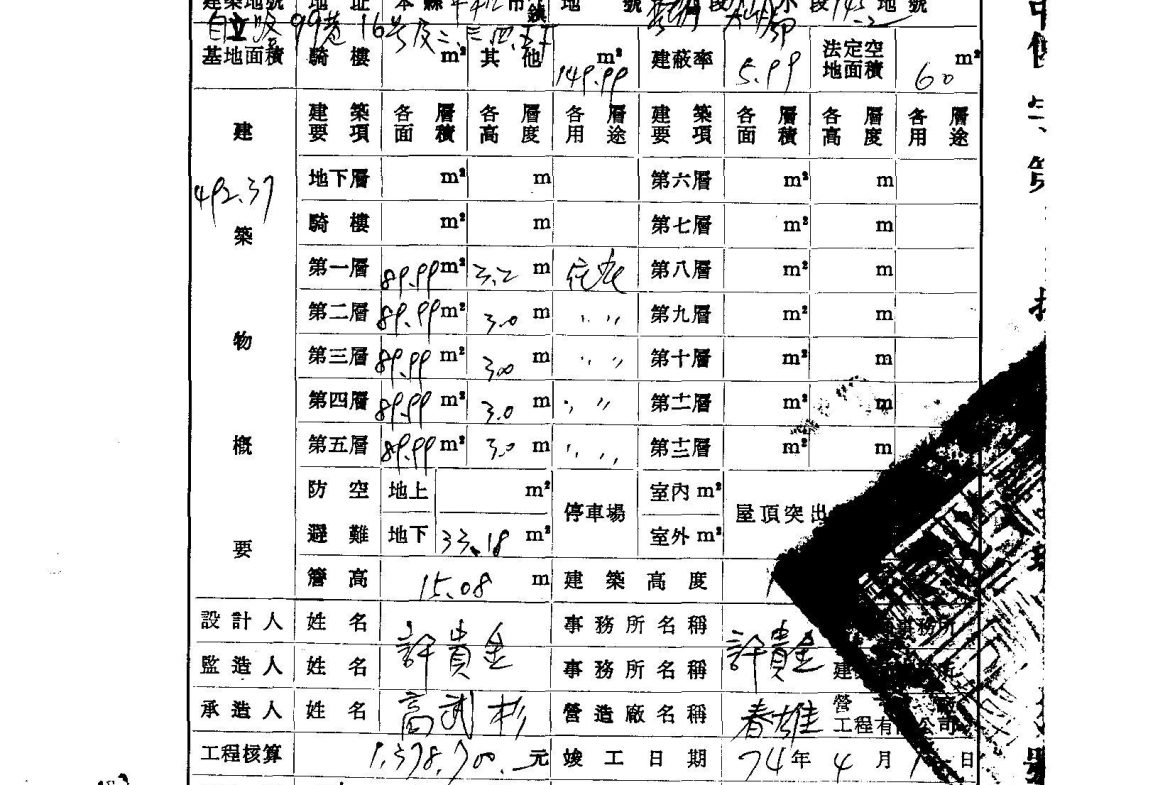 地號 地址 本縣 市鎮 地號 段 小段 地號
自立路99巷16號及二、三、四、五F
基地面積 騎樓 m² 其他 149.99 m² 建蔽率 5.99 法定空地面積 60 m²
建築物概要 492.37
建築要項 各層面積 各層高度 各層用途 建築要項 各層面積 各層高度 各層用途
地下層 m² m 第六層 m² m
騎樓 m² m 第七層 m² m
第一層 89.99 m² 3.2 m 住宅 第八層 m² m
第二層 89.99 m² 3.0 m 〃 第九層 m² m
第三層 89.99 m² 3.00 m 〃 第十層 m² m
第四層 89.99 m² 3.0 m 〃 第十一層 m² m
第五層 89.99 m² 3.0 m 〃 第十二層 m² m
防空避難 地上 m² 停車場 室內 m² 屋頂突出
地下 33.18 m² 室外 m²
簷高 15.08 m 建築高度
設計人 姓名 許貴金 事務所名稱 許貴金 事務所
監造人 姓名 事務所名稱 建
承造人 姓名 高武杉 營造廠名稱 春雄 營 工程有 公司
工程核算 1,378,700.元 竣工日期 74年4月 日